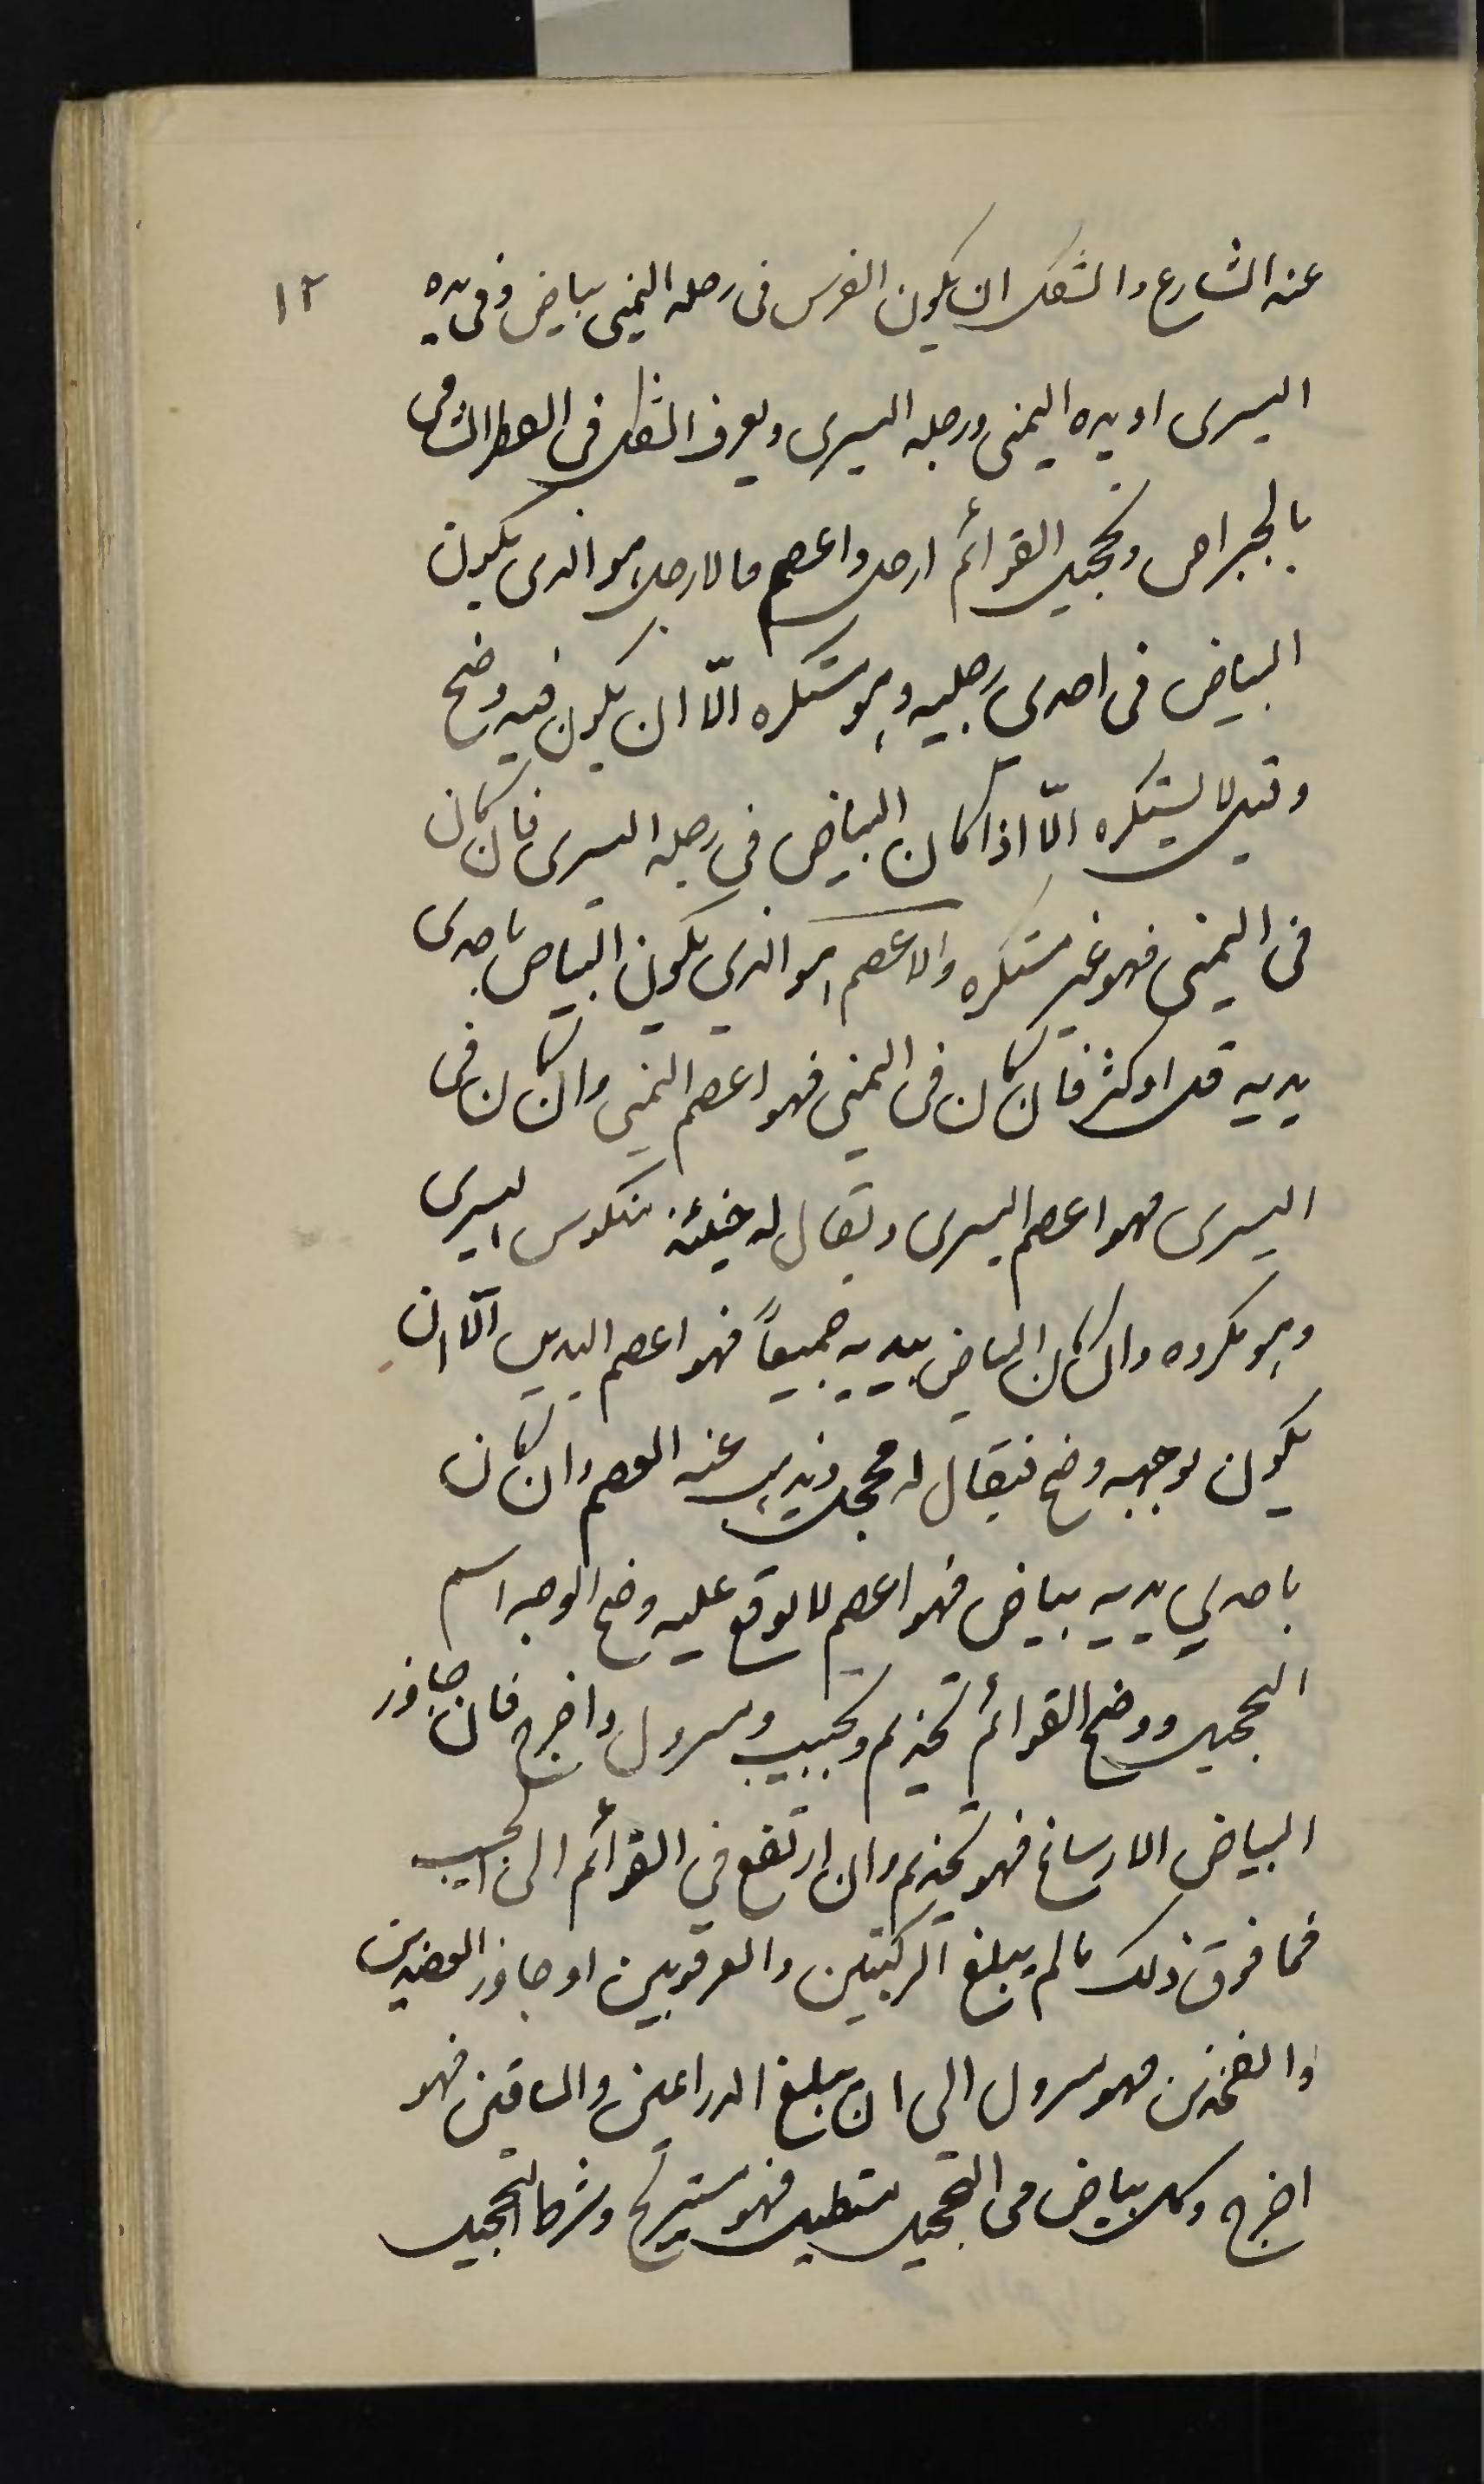 ١٢
عنه الشارع والشكل ان يكون الفرس فى رجله اليمنى بياض وفى يده
اليسرى او يده اليمنى ورجله اليسرى ويعرف الشكل فى القطر الشامى
بالجبراص وتحجيل القوائم ارجل واعصم فالارجل هو الذى يكون
البياض فى احدى رجليه وهو مستكره الّا ان يكون فيه وضح
وقيل لا يستكره الّا اذا كان البياض فى رجله اليسرى فان كان
فى اليمنى فهو غير مستكره والاعصم هو الذى يكون البياض باحدى
يديه قل او كثر فان كان فى اليمنى فهو اعصم اليمنى وان كان فى
اليسرى فهو اعصم اليسرى ويقال له حينئذ منكوس اليسرى
وهو مكروه وان كان البياض بيديه جميعاً فهو اعصم اليدين الّا ان
يكون بوجهه وضح فيقال له محجل ويذهب عنه العصم وان كان
باحدى يديه بياض فهو اعصم لا يوقع عليه وضح الوجه اسم
التحجيل ووضح القوائم تخديم وتجبيب ومسرول واخرج فان جاوز
البياض الارساغ فهو تخديم وان ارتفع فى القوائم الى الجبب
فما فوق ذلك ما لم يبلغ الركبتين والعرقوبين او جاوز العضدين
والفخذين فهو مسرول الى ان يبلغ الذراعين والساقين فهو
اخرج وكل بياض فى التحجيل مستطيل فهو مستريح وشرط التحجيل